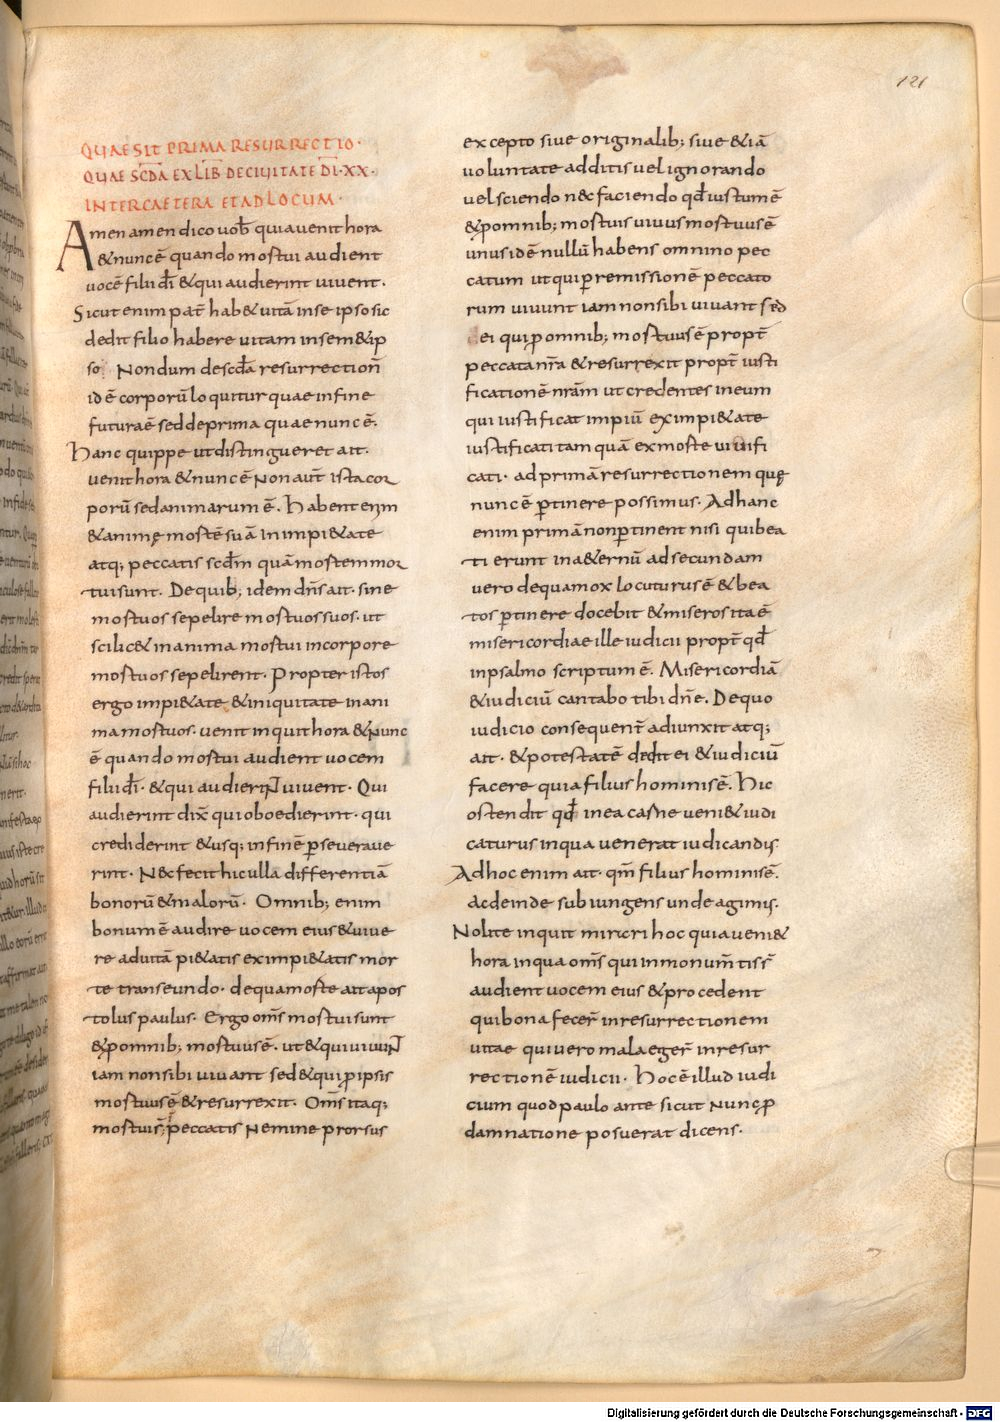 121
QUAE SIT PRIMA RESURRECTIO·
QUAE SCDA EX LIB DECIUITATE DI·XX·
INTERCAETERA ET AD LOCUM·
Amen amen dico uob̅ quia uenit hora
& nunc ē quando mortui audient
uocē filii di̅ & qui audierint uiuent·
Sicut enim pat̅ hab& uitā inse ipso sic
dedit filio habere uitam in sem&ip
so· Nondum descd̅a resurrection̄
id ē corporū loquitur quae infine
futura ē sed deprima quae nunc ē·
Hanc quippe ut distingueret ait·
uenit hora & nunc ē Non aut̄ ista cor
porū sed animarum ē· Habent eni̅m
& animę mortē suā in impi&ate
atq; peccatis scd̅m quā mortem mor
tui sunt· De quib; idem dn̅s ait· sine
mortuos sepelire mortuos suos· ut
scilic& in anima mortui in corpore
mortuos sepelirent· Propter istos
ergo impi&ate & iniquitate in ani
ma mortuos· uenit inquit hora & Nunc
ē quando mortui audient uocem
filii di̅· & qui audierint uiuent· Qui
audierint dix̅ qui oboedierint· qui
crediderint & usq; infinē p̱seueraue
rint· N&c fecit hic ulla differentiā
bonorū & malorū· Omnib; enim
bonum ē audire uocem eius & uiue
re ad uitā pi&atis ex impi&atis mor
te transeundo· de qua morte ait apos
tolus paulus· Ergo om̅s mortui sunt
& p̱ omnib; mortuus ē· ut & qui uiuunt
iam non sibi uiuant sed & qui p̱ ipsis
mortuus ē & resurrexit· Om̅s itaq;
mortui s̅; peccatis Nemine prorsus
excepto siue originalib; siue &iā
uoluntate additis uel ignorando
uel sciendo n&c faciendo qd̅ iustum ē
& p̱ omnib; mortuis uiuus mortuus ē
unus id ē nullū habens omnino pec
catum ut qui p̱ remissionē peccato
rum uiuunt iam non sibi uiuant sed
ei qui p̱ omnib; mortuus ē propt̄
peccata nr̅a & resurrexit propt̄ iusti
ficationē nr̅am ut credentes in eum
qui iustificat impiū ex impi&ate
iustificati tam quā ex morte uiuifi
cati· ad primā resurrectionem quę
nunc ē p̱tinere possimus· Ad hanc
enim primā non p̱tinent nisi qui bea
ti erunt in a&ernū ad secundam
uero de qua mox locuturus ē & bea
tos p̱tinere docebit & miseros ita ē
misericordiae ille iudicii propt̄ qd̅
in psalmo scriptum ē· Misericordiā
& iudiciū cantabo tibi dn̅e· De quo
iudicio consequent̄ adiunxit atq;
ait· & potestatē dedit ei & iudiciū
facere quia filius hominis ē· Hic
ostendit qd̅ in ea carne ueni& iudi
caturus in qua uenerat iudicandus·
Ad hoc enim ait· qm̅ filius hominis ē·
ac deinde subiungens unde agimus·
Nolite inquit mirari hoc quia ueni&
hora in qua om̅s qui in monum̅tis s̅
audient uocem eius & procedent
qui bona fecer̅ in resurrectionem
uitae qui uero mala eger̅ in resur
rectionē iudicii· Hoc ē illud iudi
cium quod paulo ante sicut Nunc p̱
damnatione posuerat dicens·
Digitalisierung gefördert durch die Deutsche Forschungsgemeinschaft - DFG